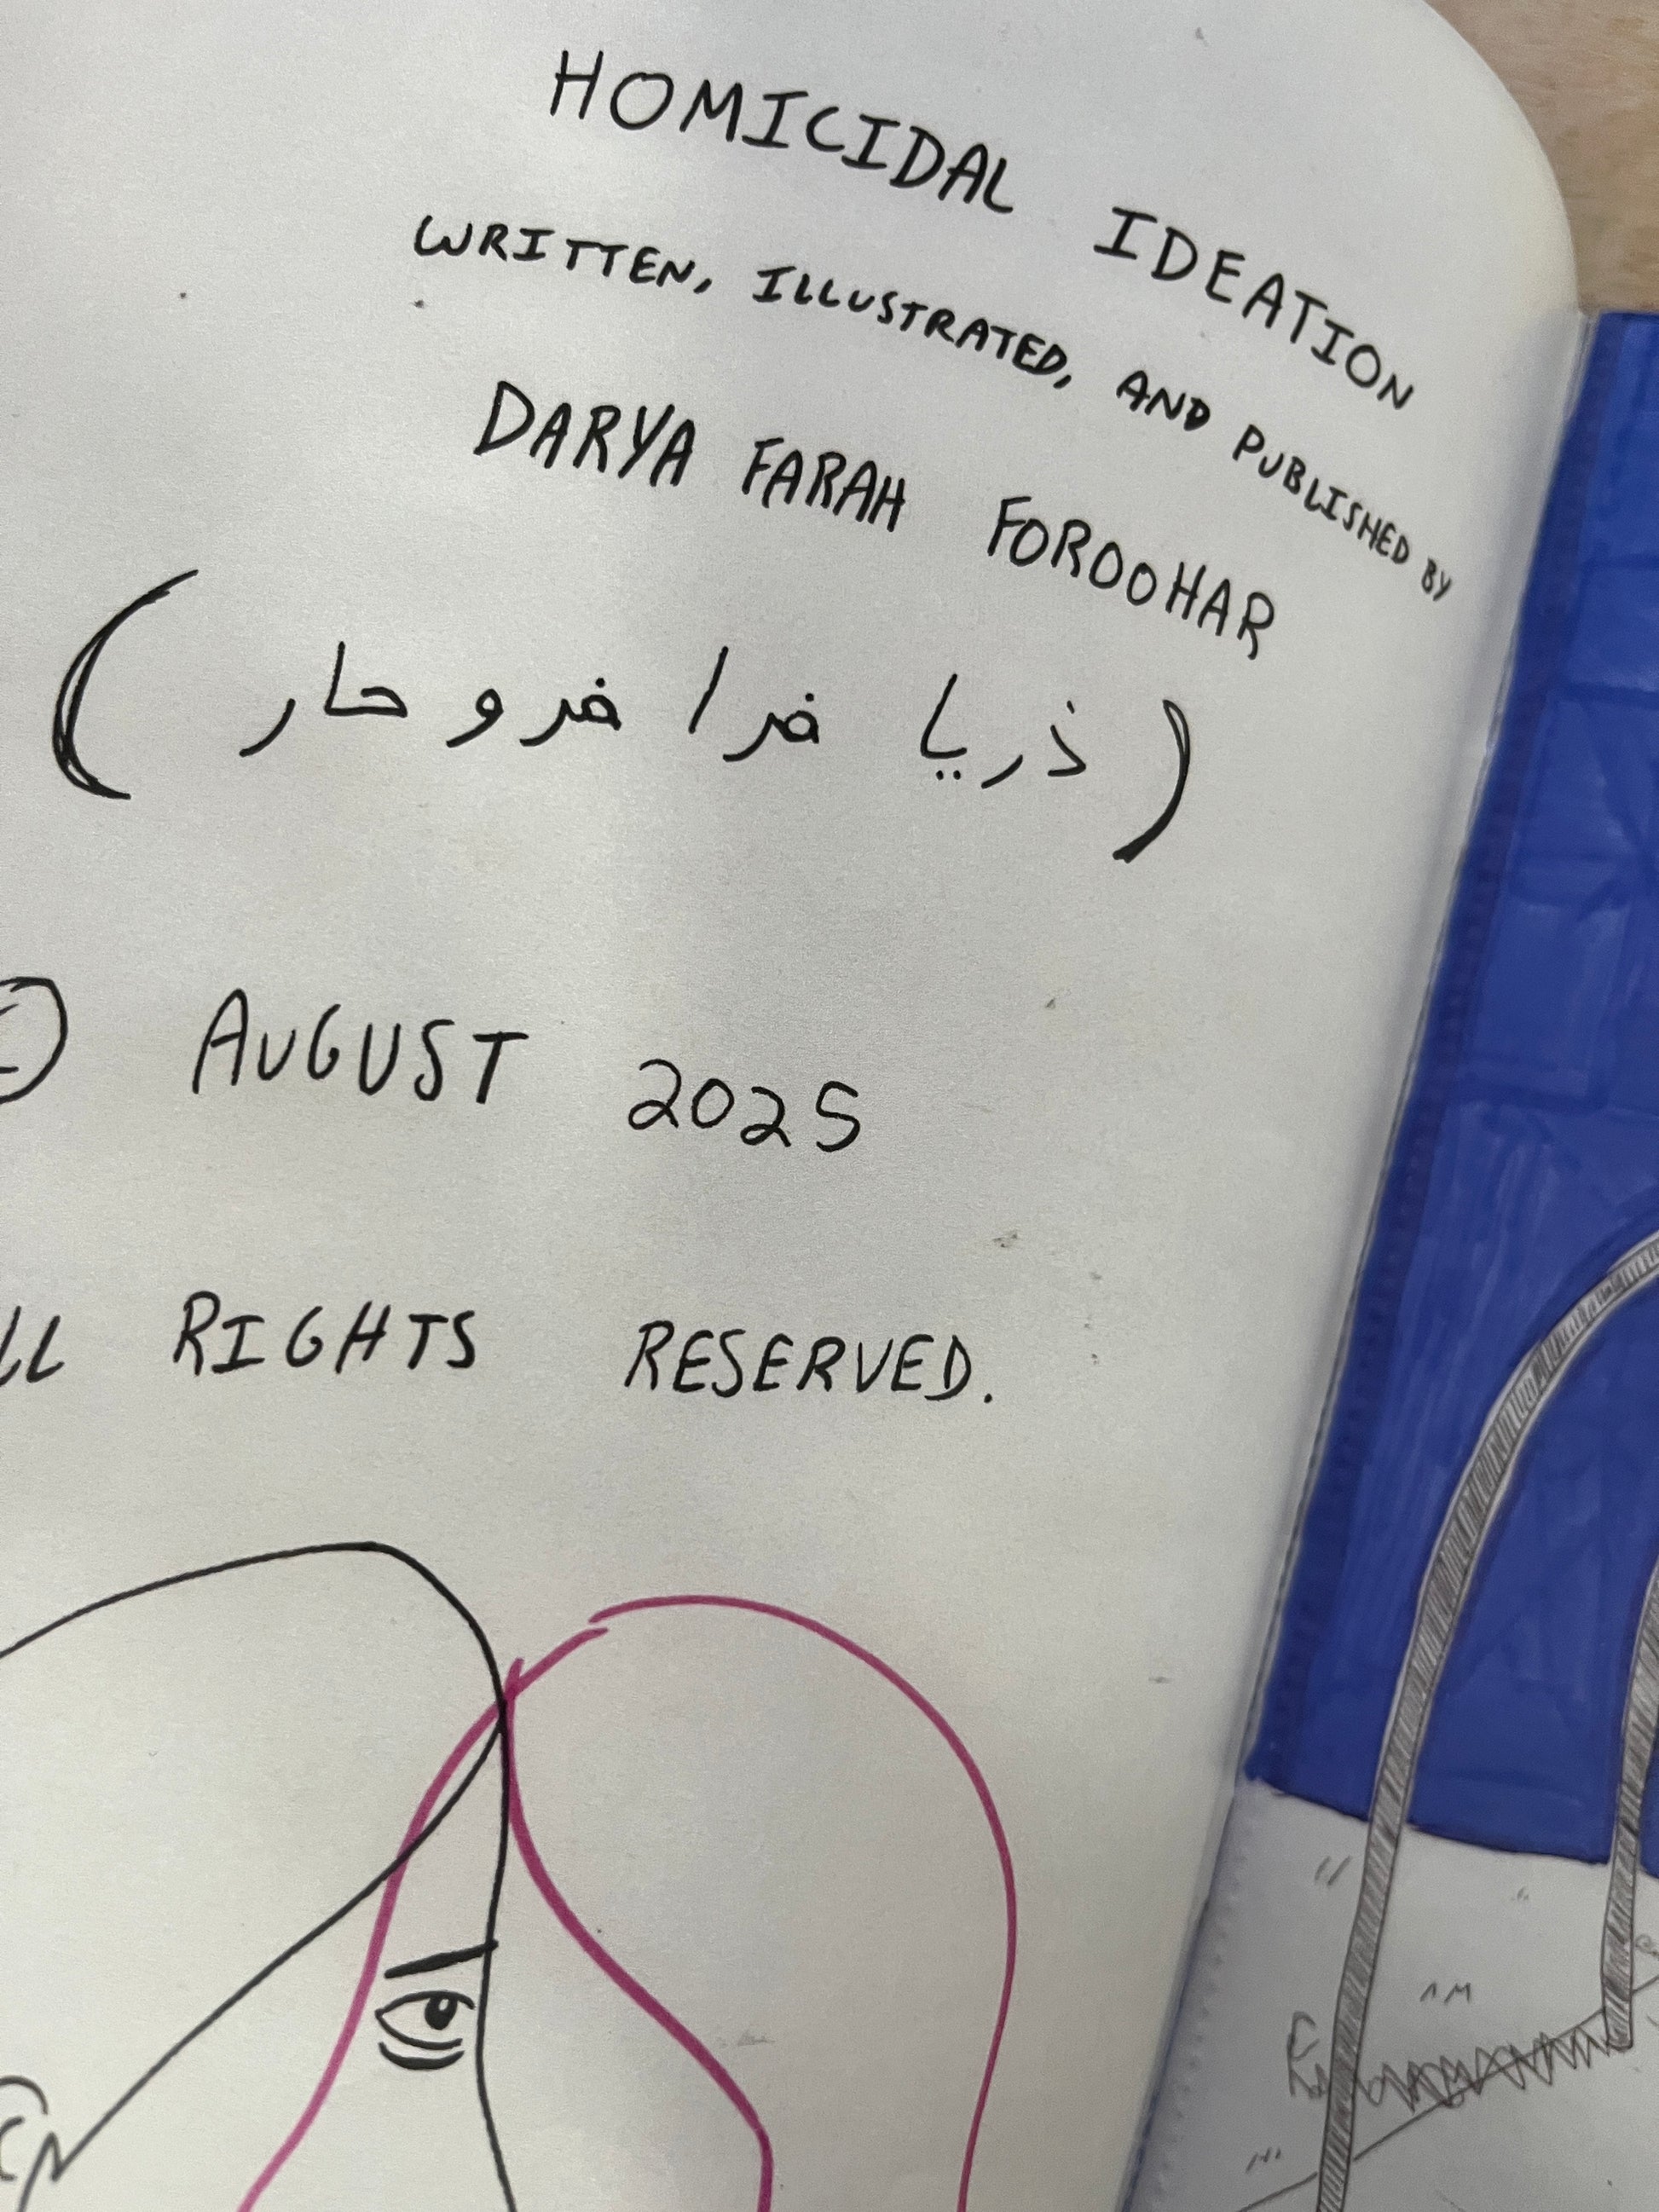 HOMICIDAL IDEATION
WRITTEN, ILLUSTRATED, AND PUBLISHED BY
DARYA FARAH FOROOHAR
(ذريا فرا فروحار)
© AUGUST 2025
LL RIGHTS RESERVED.